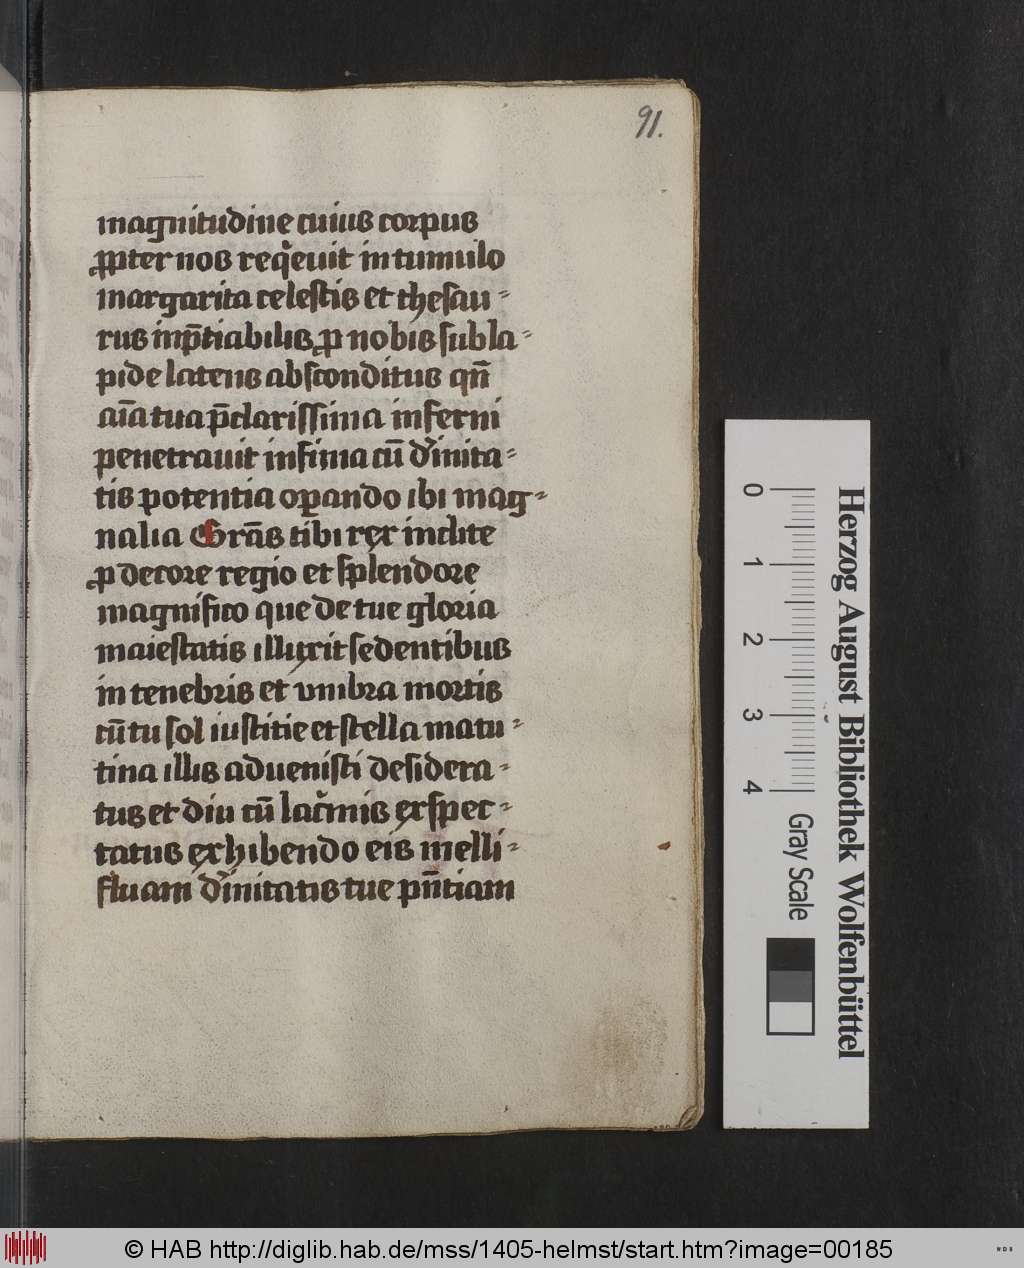 91.
magnitudine cuius corpus
ꝓpter nos reqͥeuit in tumulo
margarita celestis et thesau⸗
rus inp̄tiabilis ꝓ nobis sub la⸗
pide latens absconditus qn̄
aīa tua p̄clarissima inferni
penetrauit infima cū dͥinita⸗
tis potentia oꝑando ibi mag⸗
nalia Grās tibi rex inclite
ꝓ decore regio et splendore
magnifico que de tue gloria
maiestatis illuxit sedentibus
in tenebris et vmbra mortis
cū tu sol iustitie et stella matu⸗
tina illis aduenisti desidera⸗
tus et diu cū lacͥmis exspec⸗
tatus exhibendo eis melli⸗
fluam dͥinitatis tue pn̄tiam
0 1 2 3 4 Gray Scale
Herzog August Bibliothek Wolfenbüttel
© HAB http://diglib.hab.de/mss/1405-helmst/start.htm?image=00185